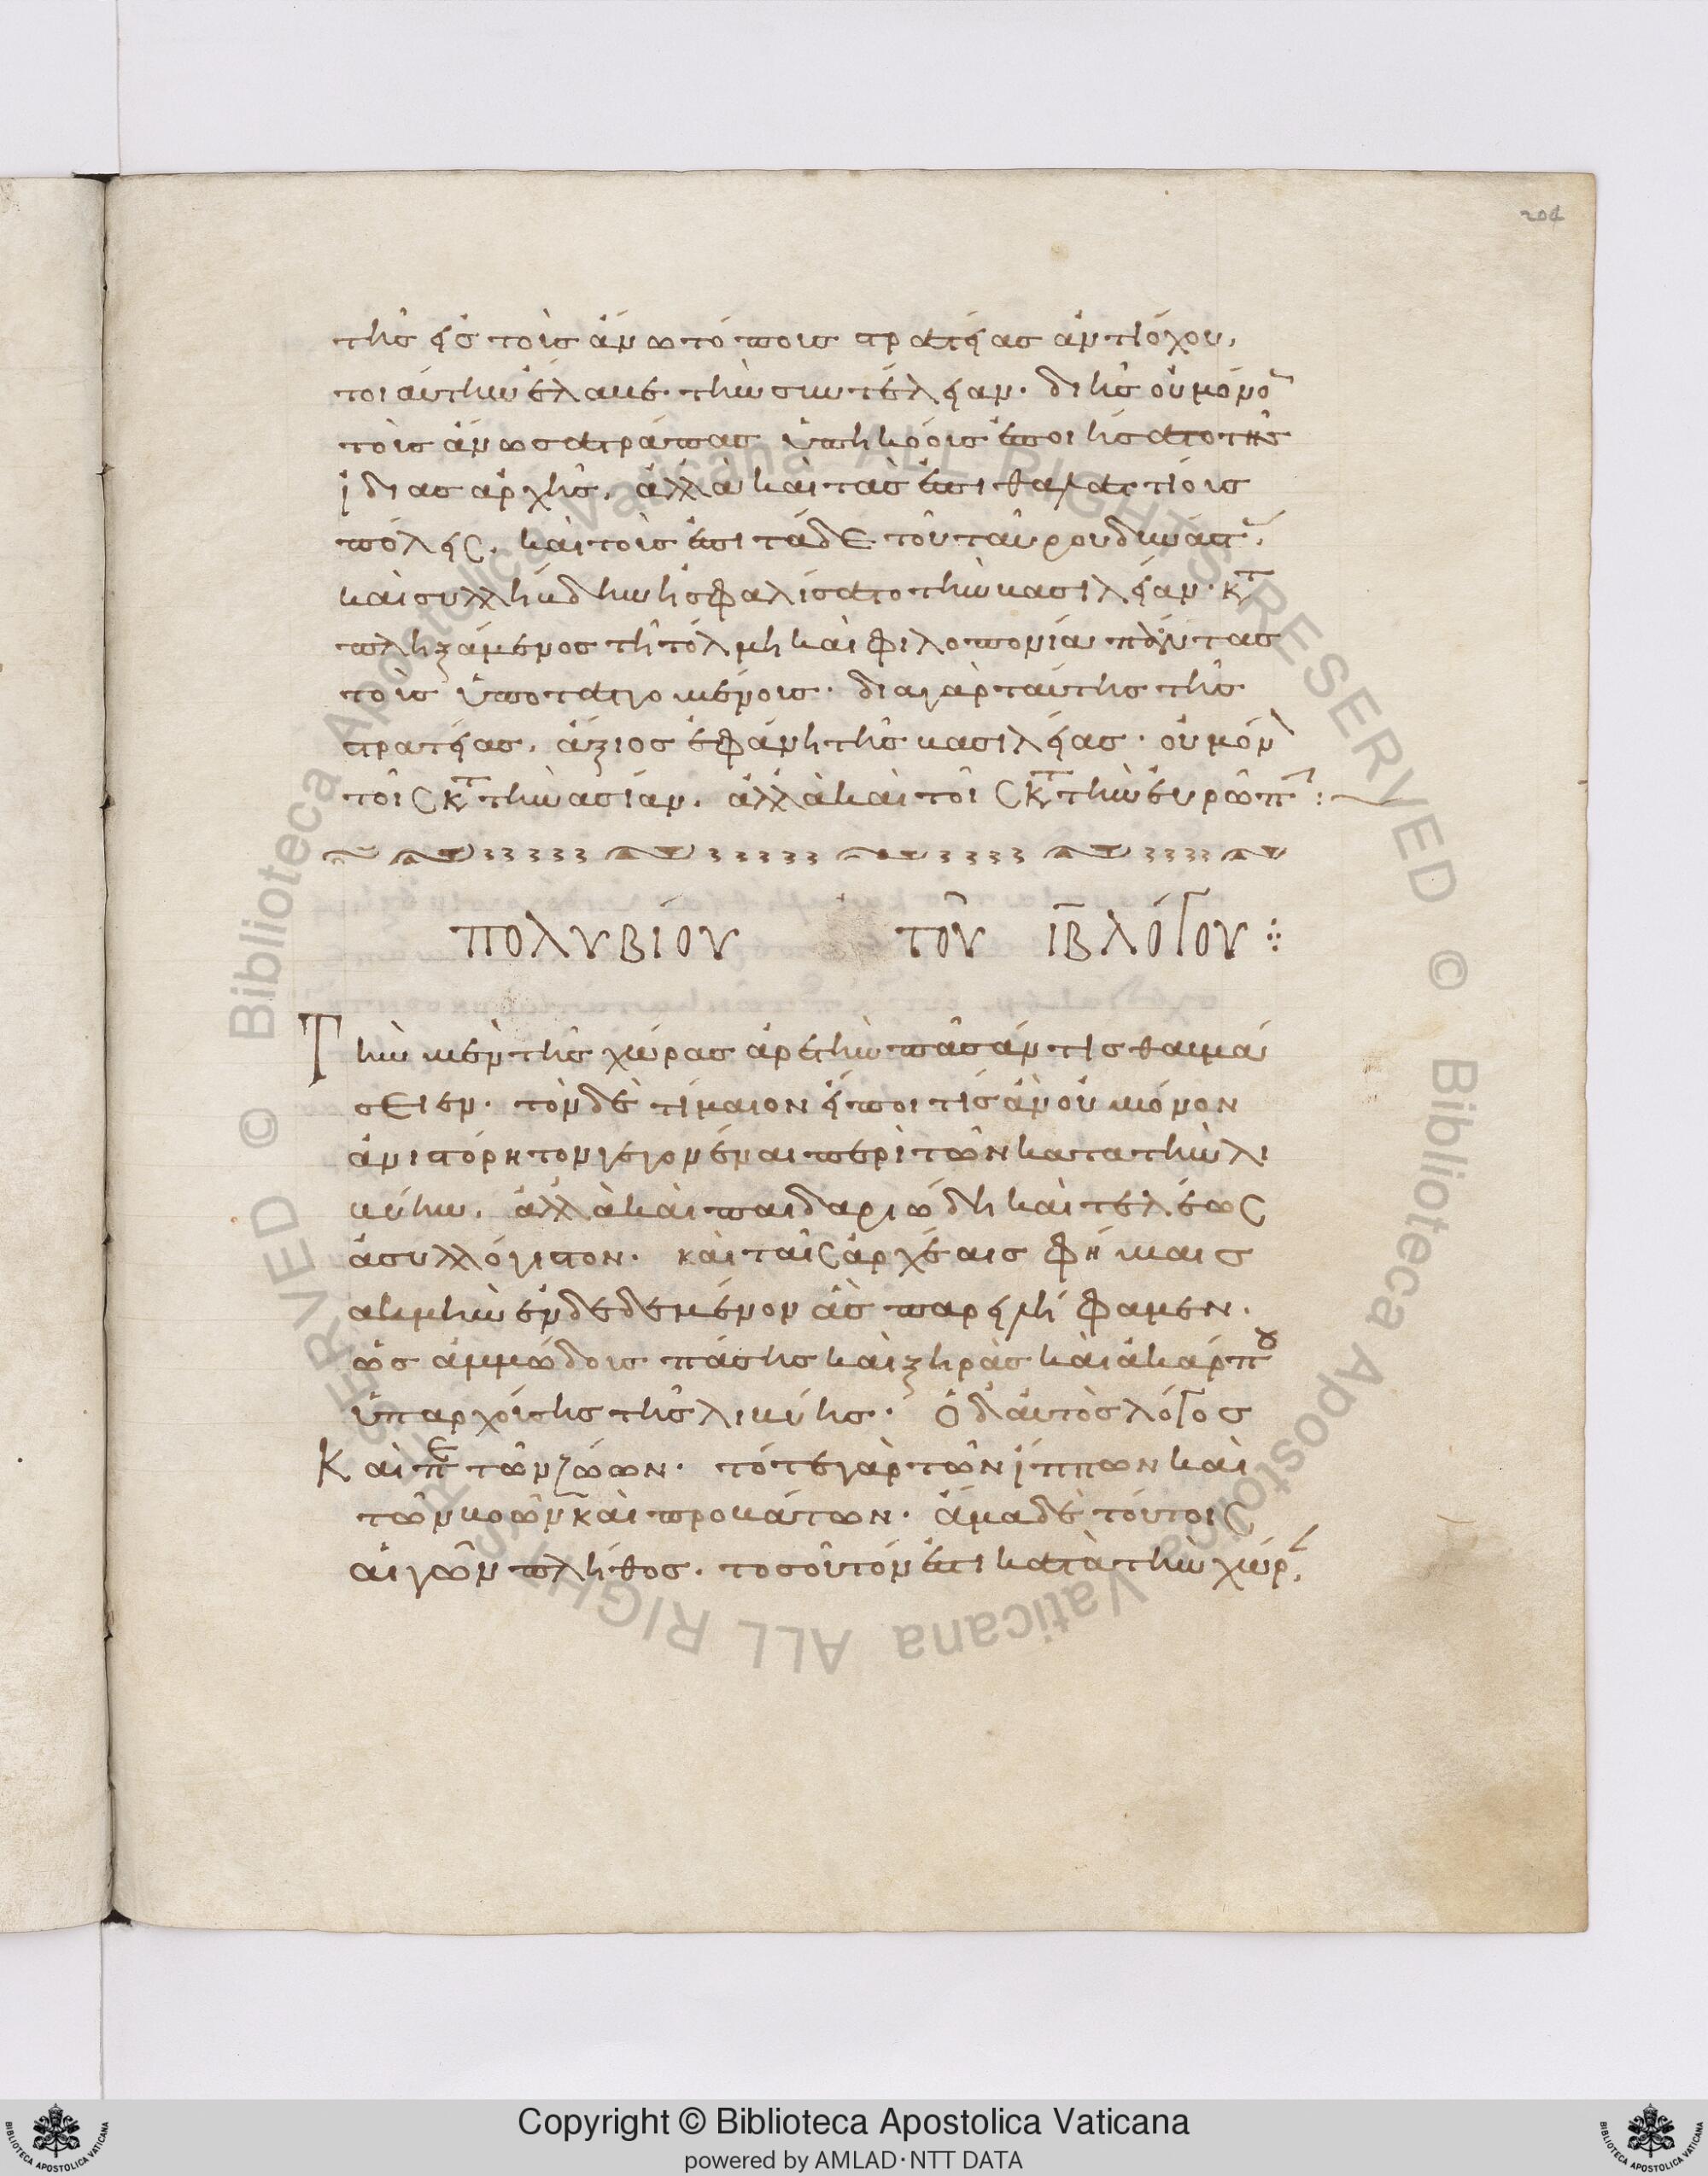 204
της εἰς τοὺς ἄνω τόπους στρατείας ἀντιόχου,
τοιαύτην ἔλαβε τὴν συντέλειαν· δι ἧς οὐ μόνον
τοὺς ἄνω σατράπας ὑπηκόους ἐποιήσατο τῆς
ἰδίας ἀρχῆς, ἀλλὰ καὶ τὰς ἐπιθαλαττίους
πόλεις, καὶ τοὺς ἐπι τάδε τοῦ ταύρου δυνάστ
καὶ συλλήβδην ἠσφαλίσατο τὴν βασιλείαν· κτ
πληξάμενος τῆ τόλμη καὶ φιλοπονία πάντας
τοὺς ὑποταττομένους· δια γὰρ ταύτης τῆς
στρατείας, ἄξιος ἐφάνη τῆς βασιλείας· οὐ μόν
τοῖς κτ τὴν ἀσίαν, ἀλλὰ καὶ τοῖς κτ τὴν ἐυρώπ:
πολυβίου τοῦ ιβ λόγου
Τὴν μὲν τῆς χώρας ἀρετὴν πᾶς ἄν τις θαυμά
σειεν· τὸν δὲ τίμαιον εἴποι τίς ἂν οὐ μόνον
ἀνιστόρητον γεγονέναι περὶ τῶν κατα τὴν λι
βύην, ἀλλὰ καὶ παιδαριώδη καὶ τελέως
ἀσυλλόγιστον· καὶ ταῖς ἀρχέαις φήμαις
ακμὴν ἐνδεδεμένον ἃς παρειλήφαμεν·
ὡς ἀμμώδους πάσης καὶ ξηρᾶς καὶ ἀκάρπου
ὑπαρχούσης τῆς λιβύης· ὁ δ' ἀυτὸς λόγος
Καὶ πε τῶν ζώων· τό τε γὰρ τῶν ἵππων καὶ
τῶν βοῶν καὶ προβάτων· ἅμα δὲ τούτοις
αἰγῶν πλῆθος· τοσοῦτόν ἐστι κατὰ τὴν χώρ,
Copyright © Biblioteca Apostolica Vaticana
powered by AMLAD·NTT DATA